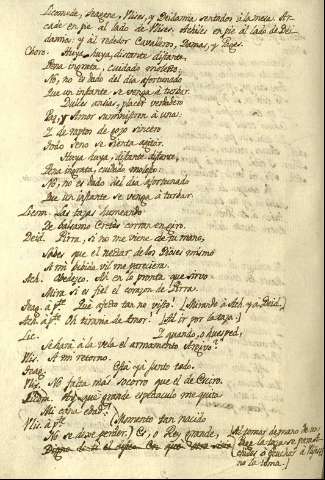 Licomede, Teagene, Ulises, y Deidamia sentados à la mesa. Ar-
cade en pie al lado de Ulises. Achiles en pie al lado de Dei-
damia: y al rededor Cavalleros, Damas, y Pages.
Choro. Huya, huya, distante distante,
Pena ingrata, cuidado molesto:
No, no es dado del dia afortunado
Que un infante se venga à turbar.
Dulces ansias, placer verdadero
Paz, y Amor suministren à una:
Y de
de gozo sincero
Todo seno se sienta agitar.
Huya huya, distante distante,
Pena ingrata, cuidado molesto:
No, no es dado del dia afortunado
Que un infante se venga à turbar.
Licom. Las tazas humeando
De balsamo Cretés corran en giro.
Deid. Pirra, si no me viene de tu mano,
Sabes que el nectar de los Dioses mismo
A mi bebida vil me pareciera.
Ach. Obedezco. Ah en lo pronta que sirvo
Mira si es fiel el corazon de Pirra.
Teag. à p.te Què afecto tan no visto! (Mirando à Ach. y a Deid.)
Ach. à p.te Oh tirania de Amor! (Al ir por la taza.)
Lic. Y quando, o huesped,
Se harà à la vela el armamento Argivo?
Ulis. A mi retorno.
Teag. Està ya junto todo.
Ulis. No falta mas socorro que el de Esciro.
que grande espectaculo me quita
Mi cana edad!
Ulis. à p.te (Momento tan nacido
No se dexe perder.) Es, o Rey grande,
al tomar de mano de
la taza se para
à escuchar à Ulises
no la toma.)